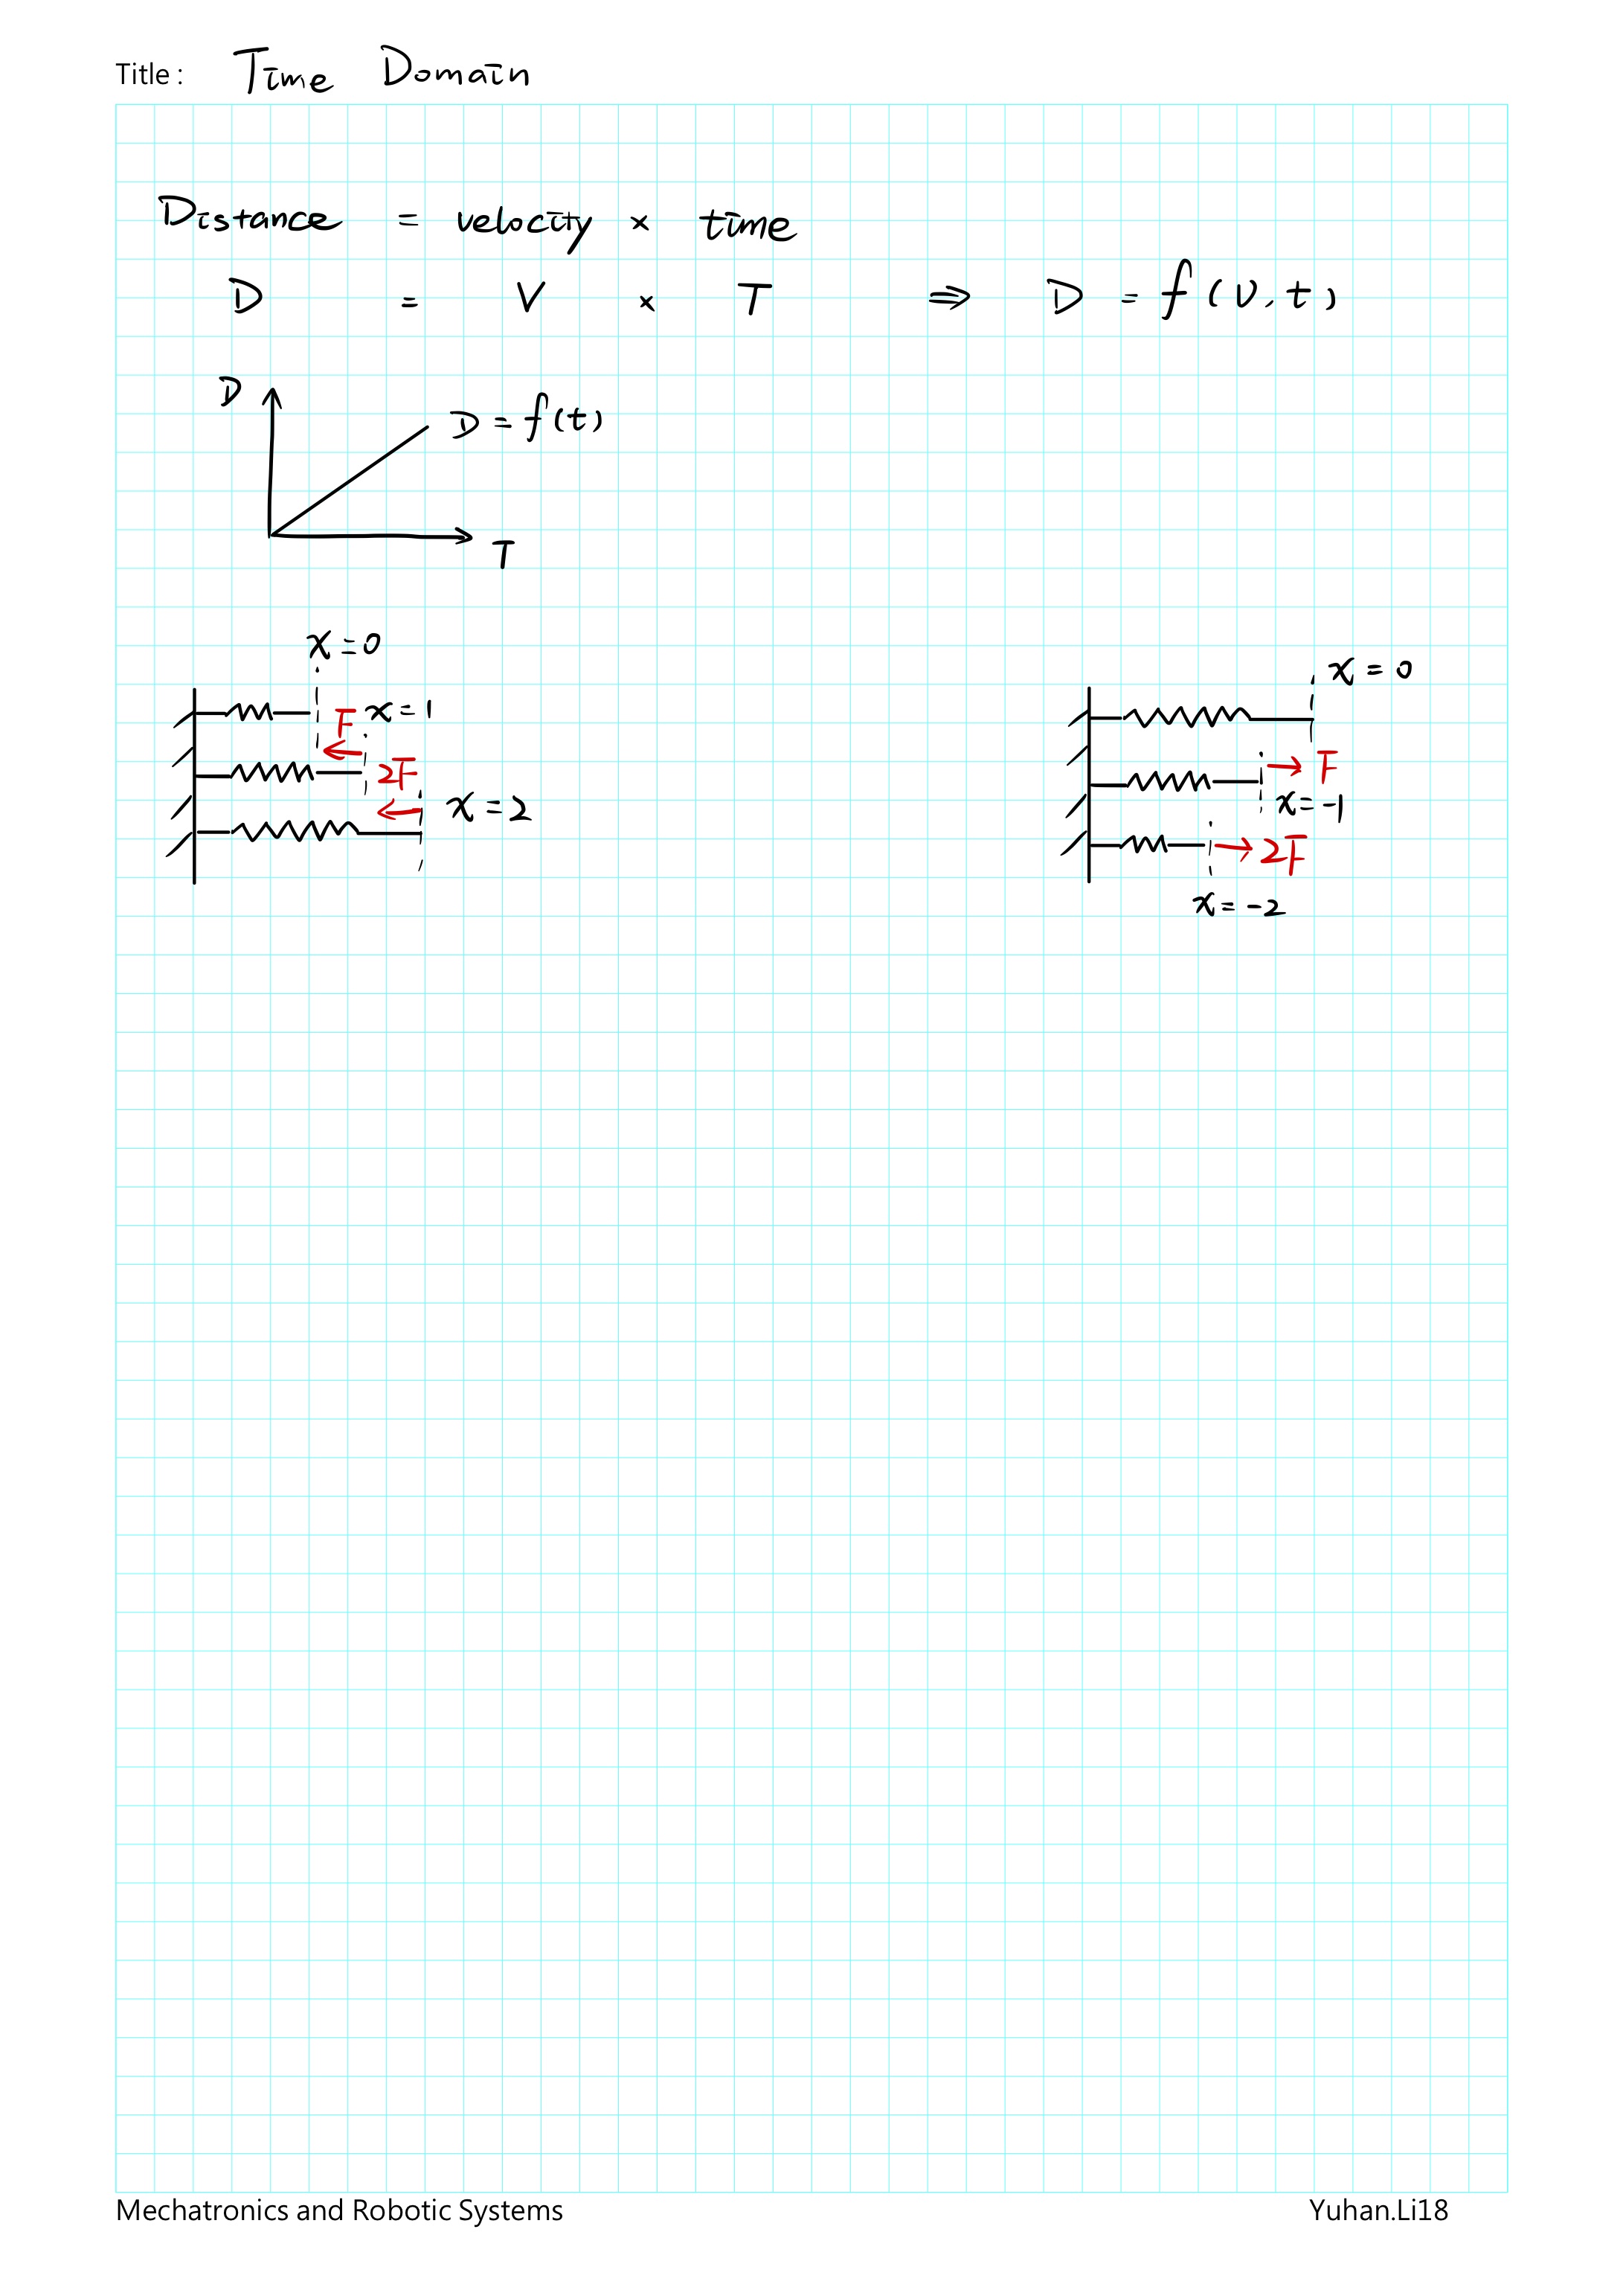 Title : Time Domain
Distance = velocity × time
D = V × T ⇒ D = f(v,t)
D
D = f(t)
T
x=0
F x=1
2F
x=2
x=0
F
x=-1
2F
x=-2
Mechatronics and Robotic Systems Yuhan.Li18